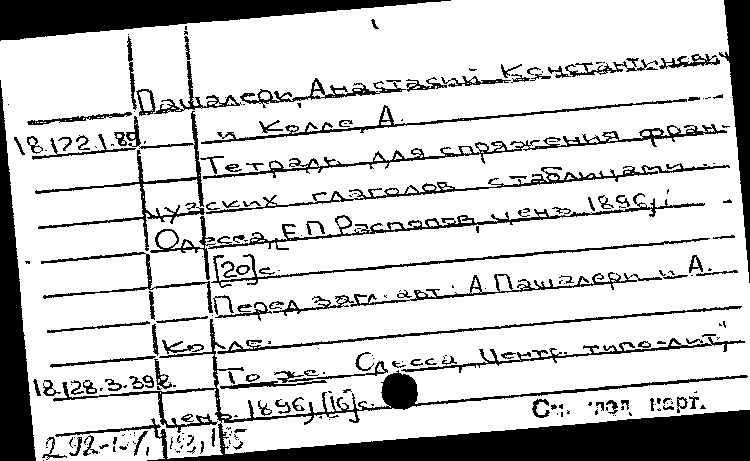 Пашалери, Анастасий Константинович
18.172.1.89. и Колле, А.
Тетрадь для спряжения фран-
цузских глаголов с таблицами.
Одесса, Е.П. Распопов, ценз. 1896,
[20]с.
Перед загл. авт.: А Пашалери и А.
Колле.
18.128.3.398. То же. Одесса, "Центр. типо-лит",
ценз. 1896, [16]с.
См. след карт.